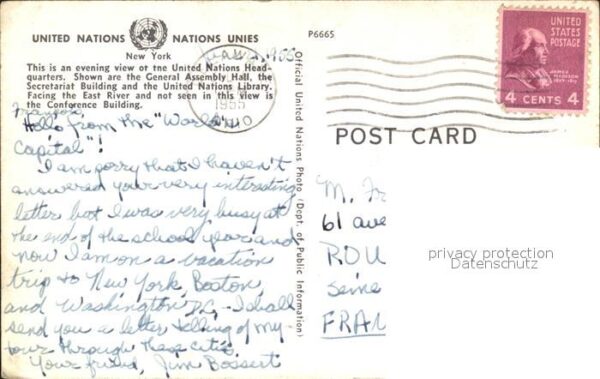 UNITED NATIONS NATIONS UNIES
New York
This is an evening view of the United Nations Head-
quarters. Shown are the General Assembly Hall, the
Secretariat Building and the United Nations Library.
Facing the East River and not seen in this view is
the Conference Building.
P6665
Official United Nations Photo (Dept. of Public Information)
POST CARD
UNITED
STATES
POSTAGE
JAMES
MADISON
4 CENTS 4
1955
Hello from the "World
Capital"!
I am sorry that I haven't
answered your very interesting
letter but I was very busy at
the end of the school year and
now I am on a vacation
trip to New York, Boston,
and Washington D.C. - I shall
send you a letter telling of my
tour through these cities.
Your friend, Jim Bossert
M. Fr
61 ave
ROU
Seine
FRAN
privacy protection
Datenschutz